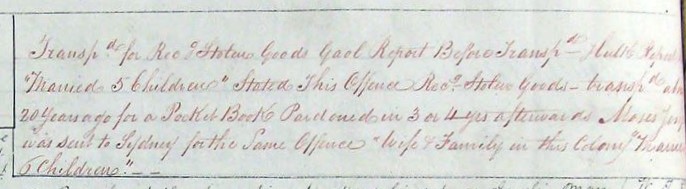 Transpd for Recg Stolen Goods Gaol Report Before Transpn Hulk Report
"Married 5 Children" Stated This Offence Recg Stolen Goods - transpd abt
20 Years ago for a Pocket Book Pardoned in 3 or 4 yrs afterwards Moses
was sent to Sydney for the Same Offence "Wife & Family in this Colony
6 Children". - -